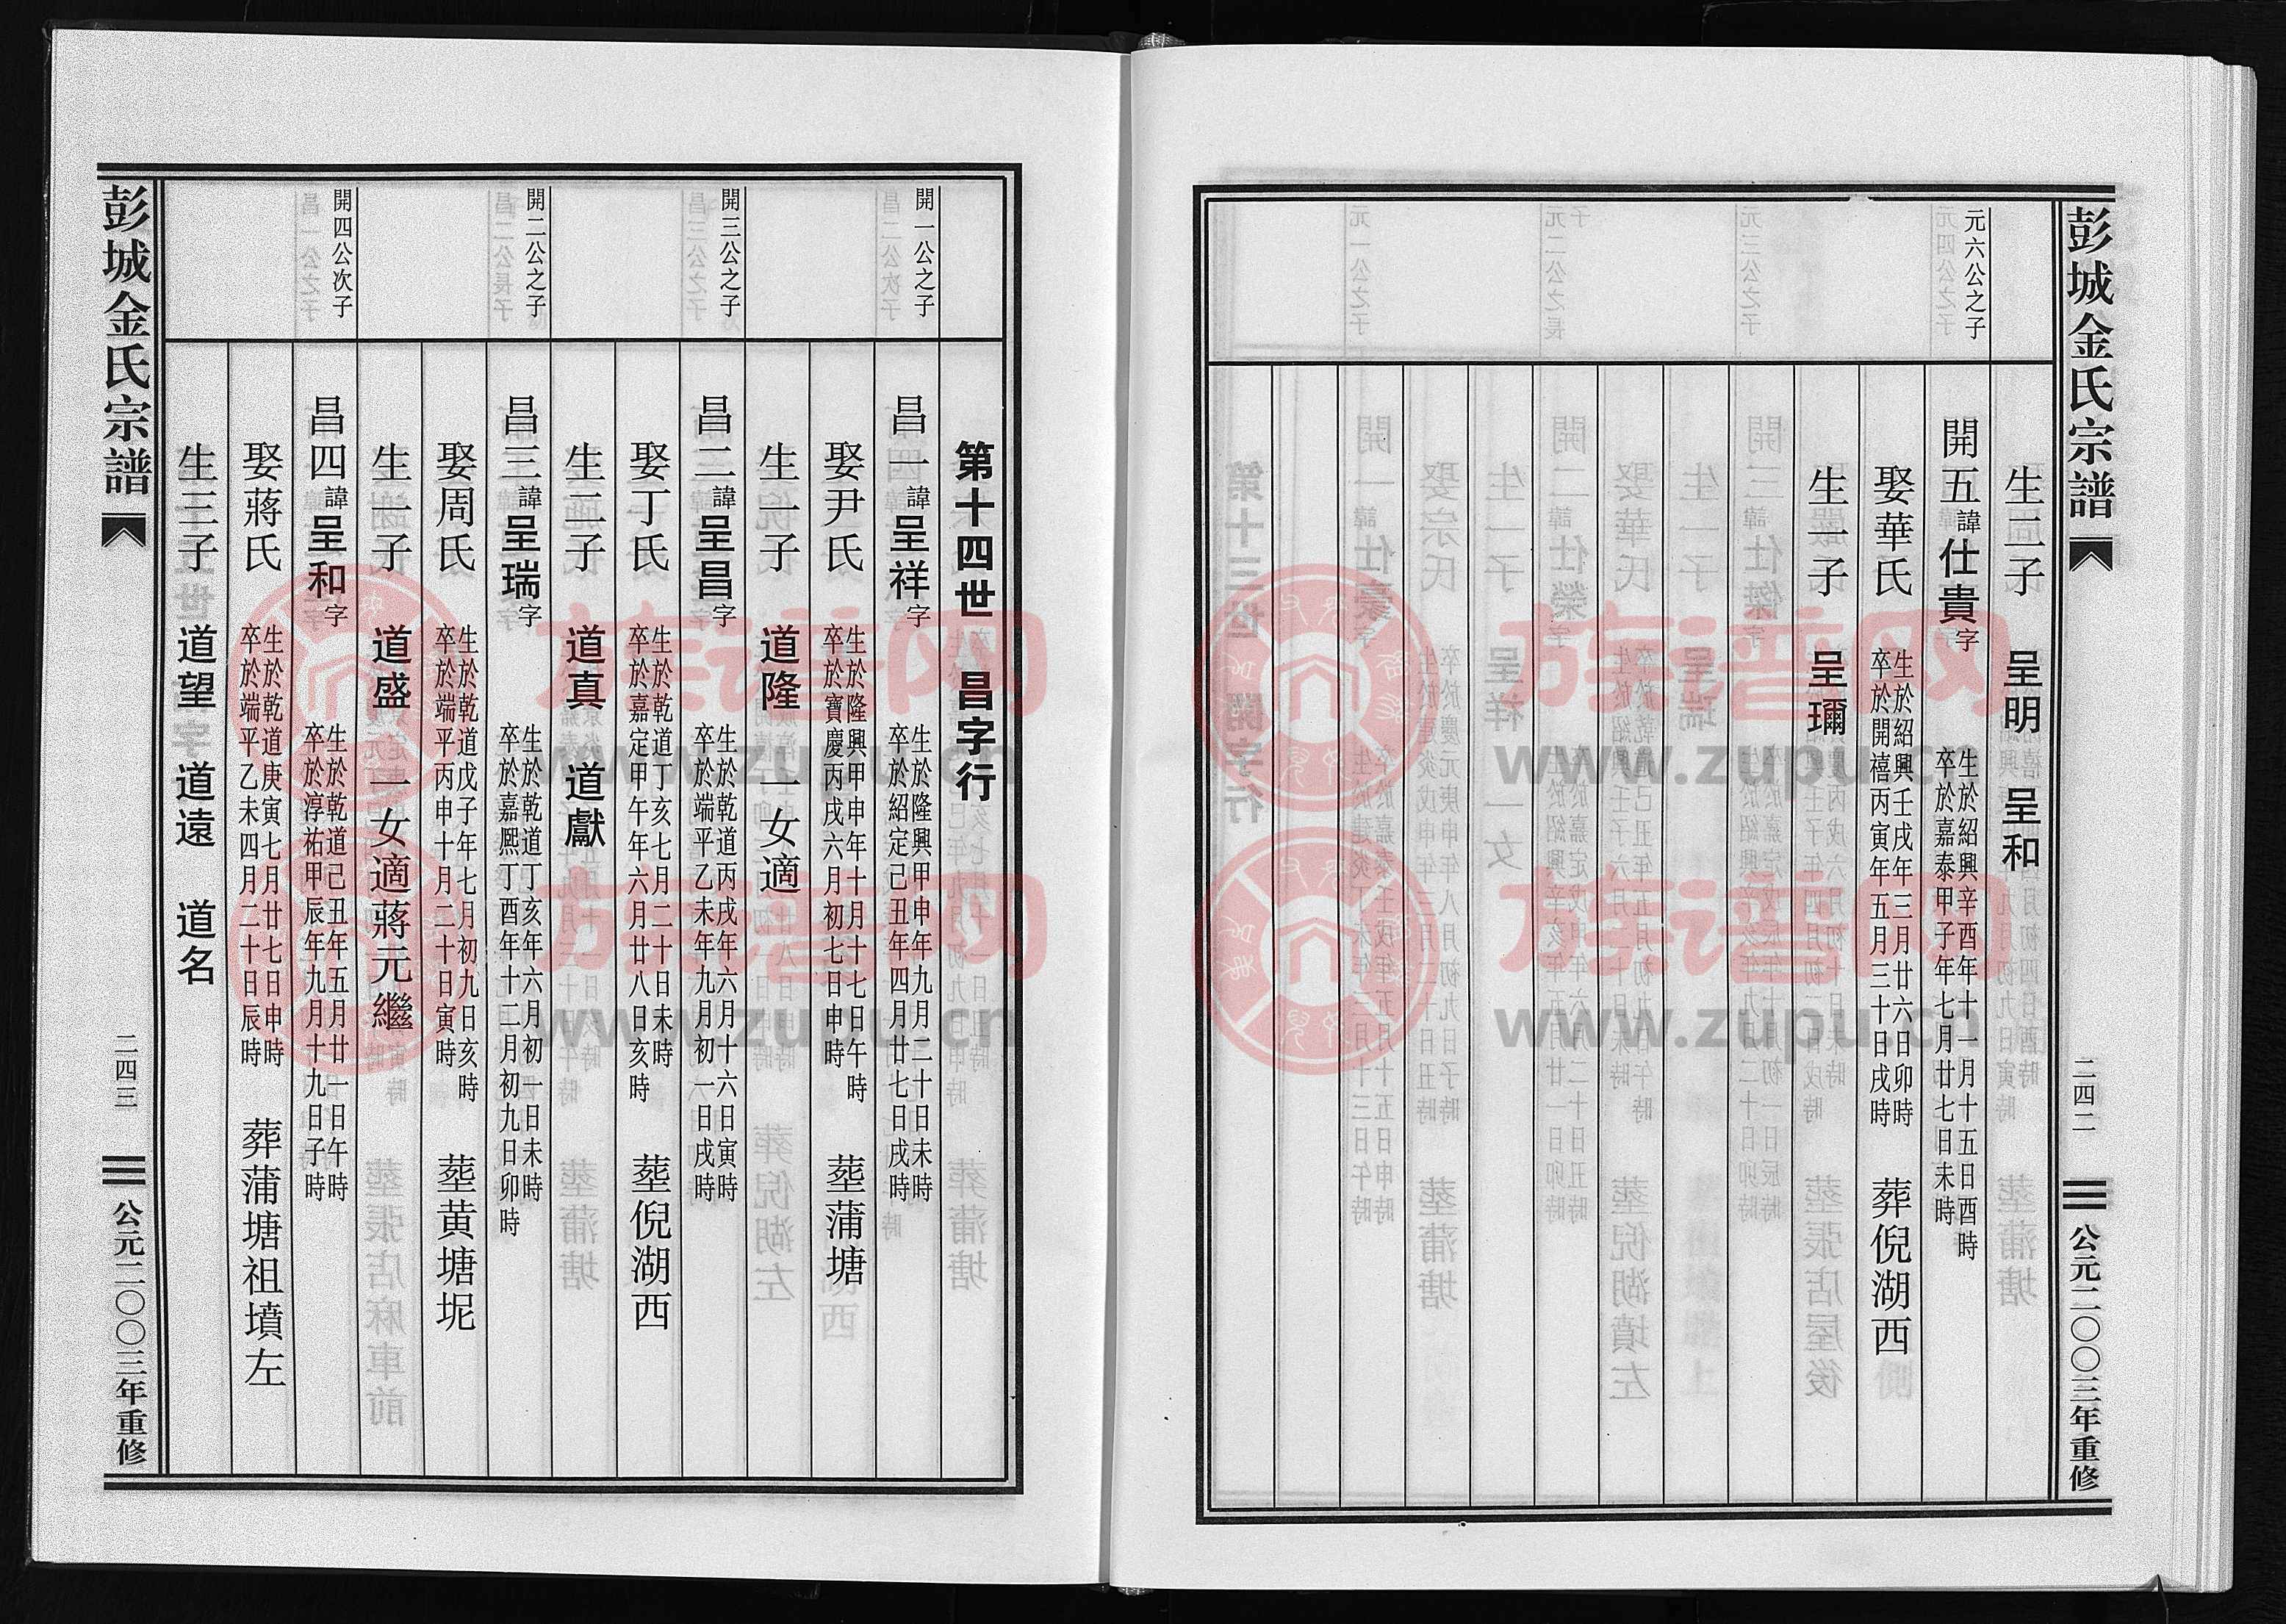 彭城金氏宗譜
二四二
公元二〇〇三年重修
生二子 呈明 呈和
元六公之子
開五諱仕貴字
生於紹興辛酉年十一月十五日酉時
卒於嘉泰甲子年七月廿七日未時
娶華氏
生於紹興壬戌年三月廿六日卯時
卒於開禧丙寅年五月三十日戌時
葬倪湖西
生一子 呈瓓
第十四世 昌字行
開一公之子
昌一諱呈祥字
生於隆興甲申年九月二十日未時
卒於紹定己丑年四月廿七日戌時
娶尹氏
生於隆興甲申年十月十七日午時
卒於寶慶丙戌六月初七日申時
葬蒲塘
生一子 道隆 一女適
開三公之子
昌二諱呈昌字
生於乾道丙戌年六月十六日寅時
卒於端平乙未年九月初一日戌時
娶丁氏
生於乾道丁亥七月二十日未時
卒於嘉定甲午年六月廿八日亥時
葬倪湖西
生二子 道真 道獻
開二公之子
昌三諱呈瑞字
生於乾道丁亥年六月初一日未時
卒於嘉熙丁酉年十二月初九日卯時
娶周氏
生於乾道戊子年七月初九日亥時
卒於端平丙申十月二十日寅時
葬黄塘坭
生一子 道盛 一女適蔣元繼
開四公次子
昌四諱呈和字
生於乾道己丑年五月廿一日午時
卒於淳祐甲辰年九月十九日子時
娶蔣氏
生於乾道庚寅七月廿七日申時
卒於端平乙未四月二十日辰時
葬蒲塘祖墳左
生三子 道望 道遠 道名
彭城金氏宗譜
二四三
公元二〇〇三年重修
族谱网
www.zupu.cn
族谱网
www.zupu.cn
族谱网
www.zupu.cn
族谱网
www.zupu.cn